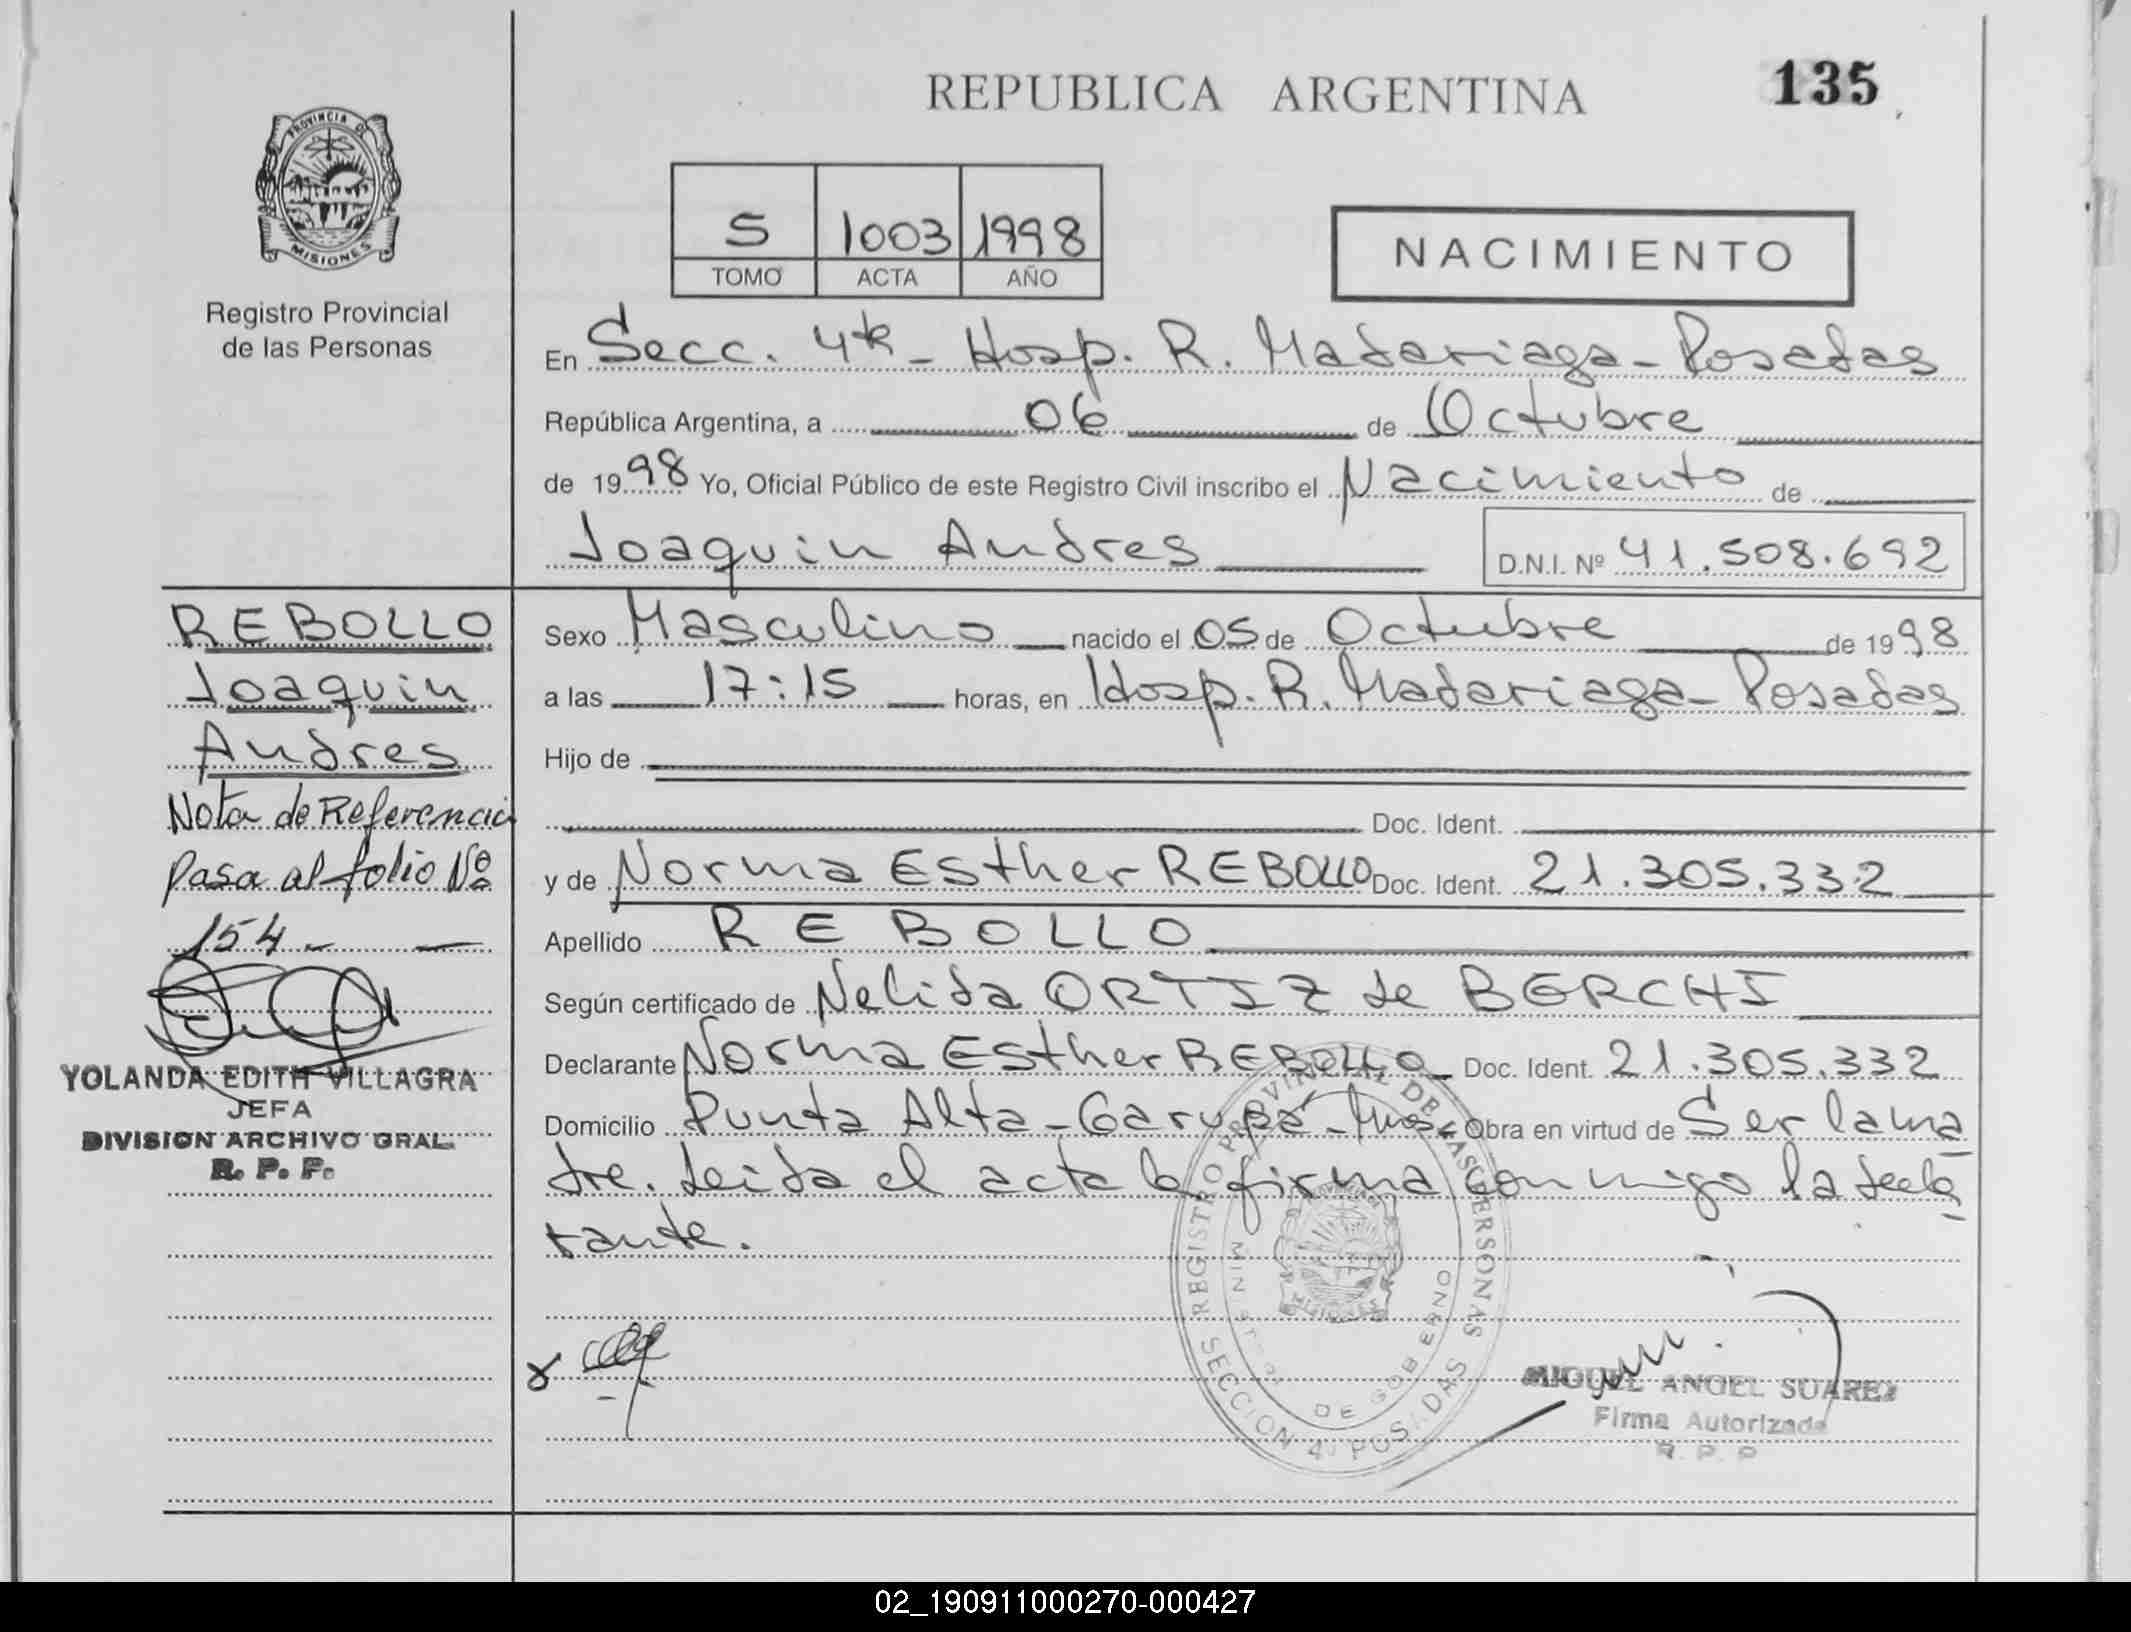 REPUBLICA ARGENTINA
135
PROVINCIA DE
MISIONES
Registro Provincial
de las Personas
S 1003 1998
TOMO ACTA AÑO
NACIMIENTO
En Secc. 4ta - Hosp. R. Madariaga - Posadas
República Argentina, a 06 de Octubre
de 1998 Yo, Oficial Público de este Registro Civil inscribo el Nacimiento de
Joaquin Andres
D.N.I. Nº 41.508.692
REBOLLO
Joaquin
Andres
Nota de Referencia
Pasa al folio Nº
154 - -
YOLANDA EDITH VILLAGRA
JEFA
DIVISION ARCHIVO GRAL.
R. P. P.
Sexo Masculino nacido el 05 de Octubre de 1998
a las 17:15 horas, en Hosp. R. Madariaga - Posadas
Hijo de
Doc. Ident.
y de Norma Esther REBOLLO Doc. Ident. 21.305.332
Apellido REBOLLO
Según certificado de Nelida ORTIZ de BERCHI
Declarante Norma Esther REBOLLO Doc. Ident. 21.305.332
Domicilio Punta Alta - Garupá - Mnes. Obra en virtud de Ser la ma-
dre. Leida el acta la firma conmigo la decla-
rante.
REGISTRO PROVINCIAL DE LAS PERSONAS
SECCION 4a POSADAS
MINISTERIO DE GOBIERNO
MISIONES
MIGUEL ANGEL SUAREZ
Firma Autorizada
R. P. P
02_190911000270-000427